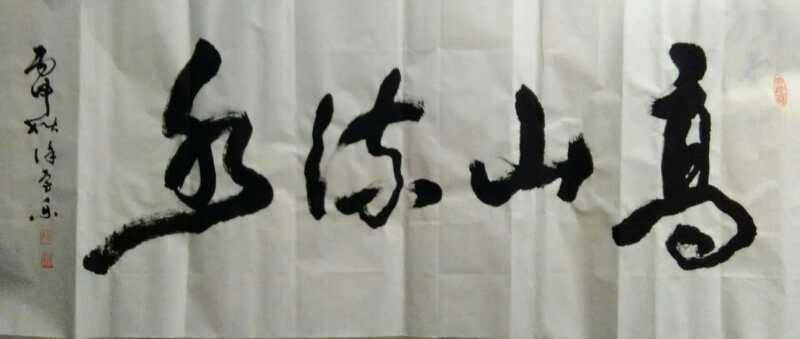 高山流水
丙申秋